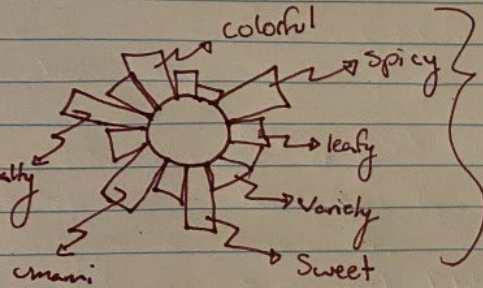 colorful
spicy
leafy
variety
Sweet
umami